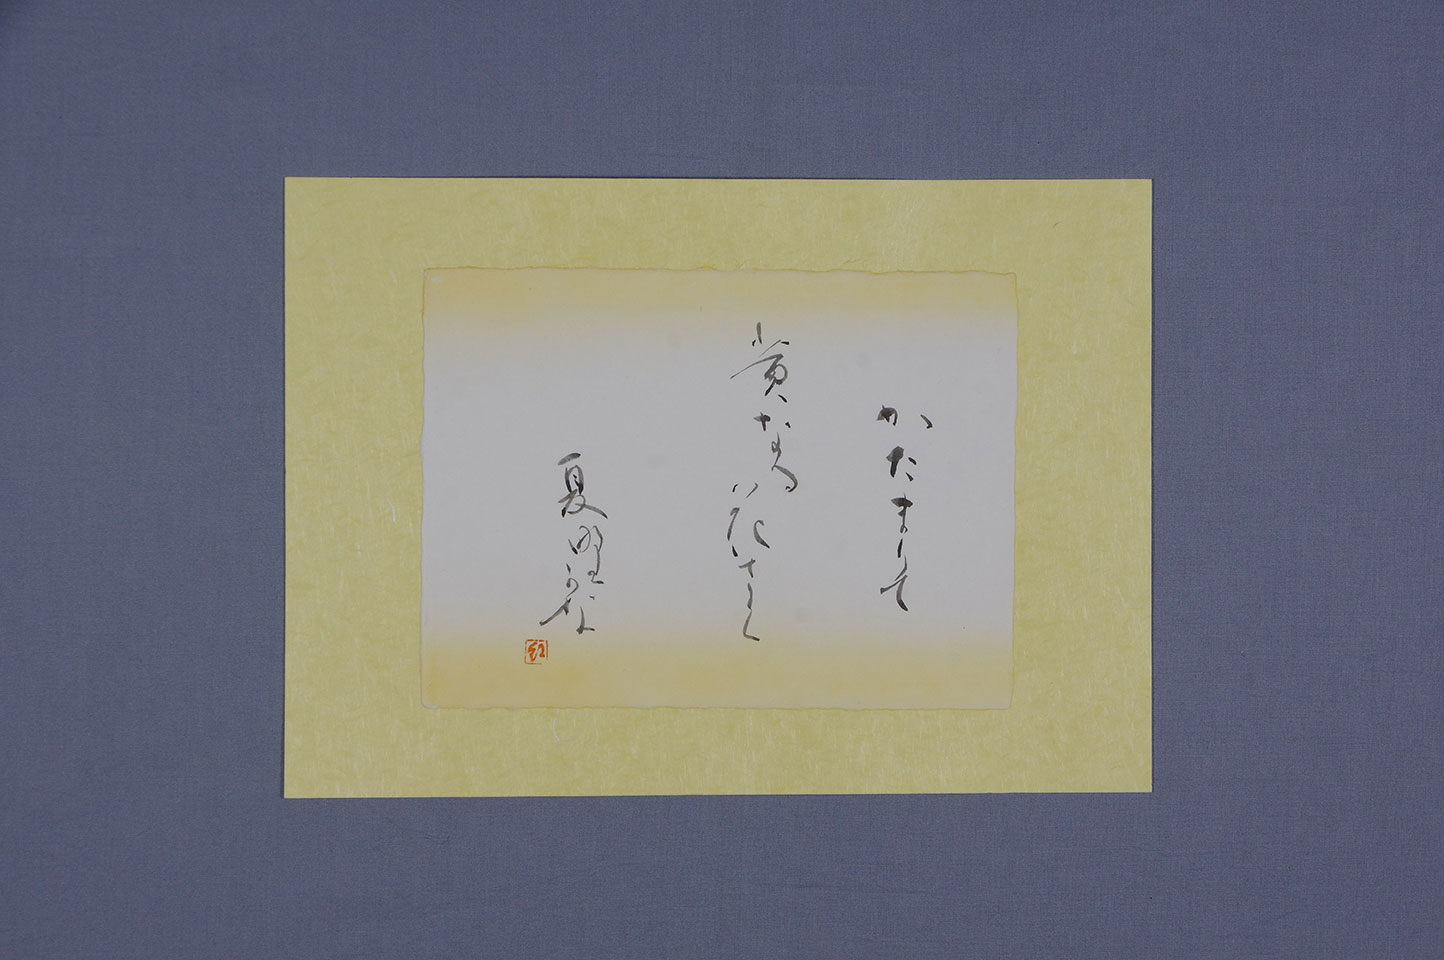 かたまりて
黄なる花さく
夏野かな